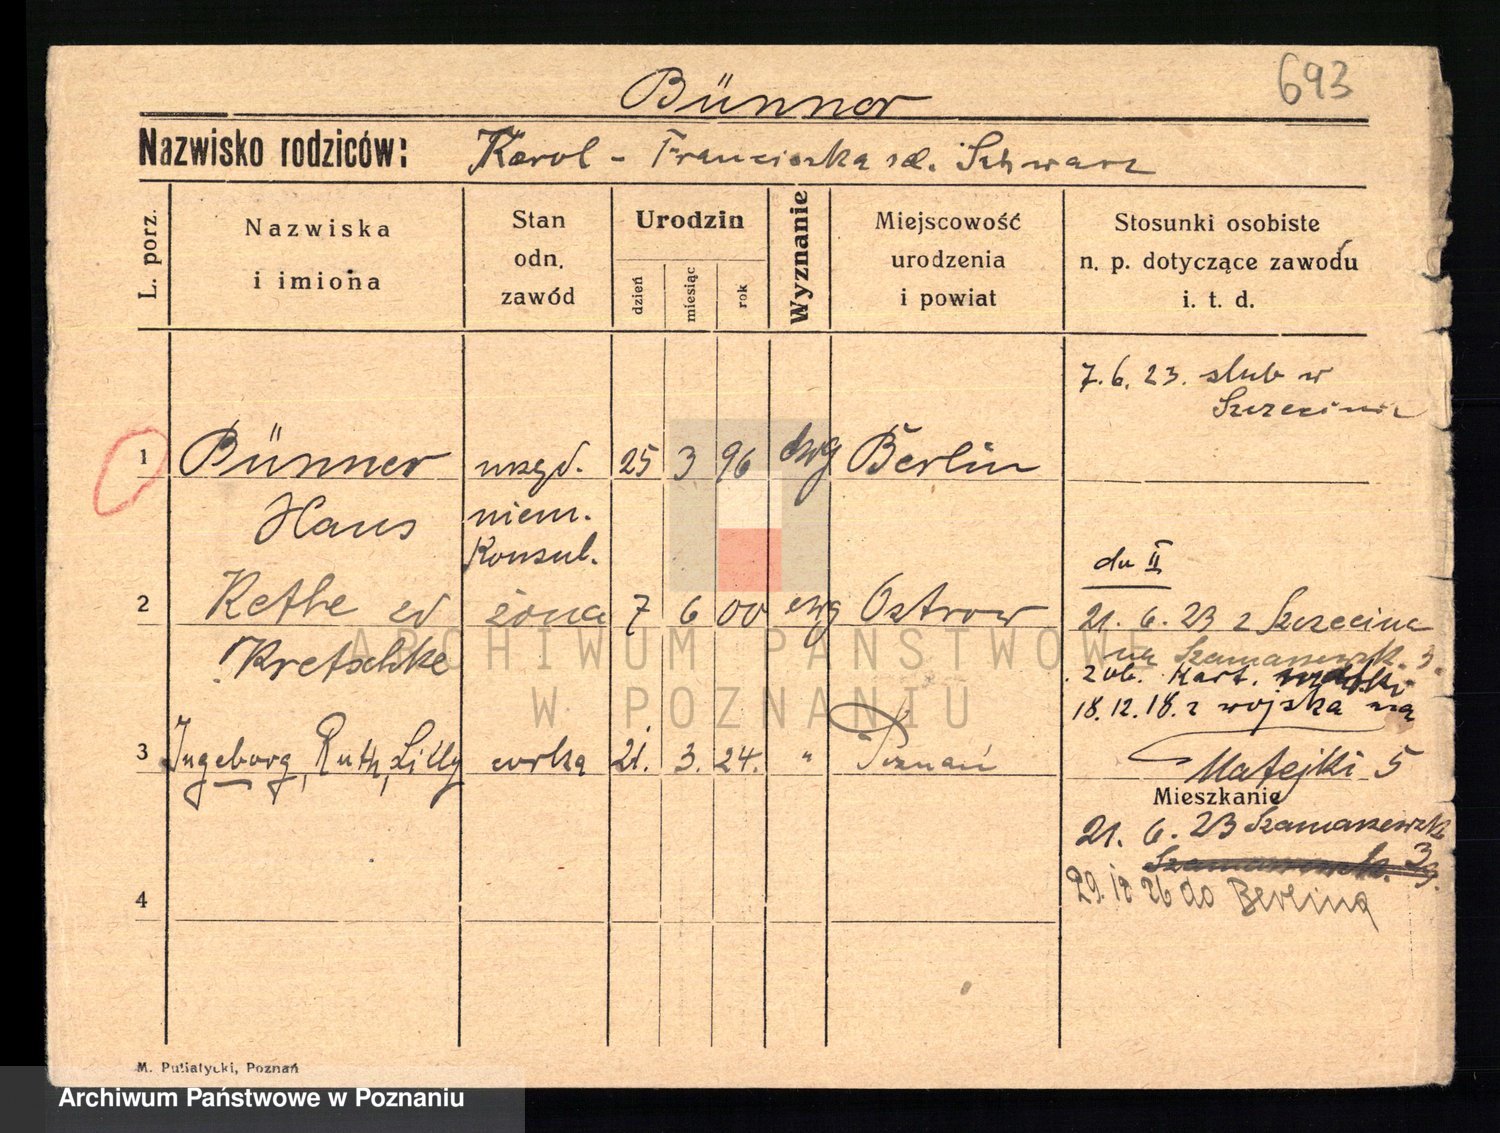 693
Bünner
Nazwisko rodziców: Karol - Franciszka zd. Schwarz
L. porz.
Nazwiska
i imiona
Stan
odn.
zawód
Urodzin
dzień
miesiąc
rok
Wyznanie
Miejscowość
urodzenia
i powiat
Stosunki osobiste
n. p. dotyczące zawodu
i. t. d.
7. 6. 23. slub w
Szczecinie
1 Bünner urzęd. 25 3 96 ewg Berlin
Hans niem.
Konsul.
du II
2 Kethe zd żona 7 6 00 ewg Ostrow 21. 6. 23 z Szczecina
Kretschke na Szamarzewsk. 3.
zob. Kart.
18. 12. 18. z wojska na
3 Ingeborg, Ruth, Lilly corka 21. 3. 24. " Poznań
Matejki 5
Mieszkanie
21. 6. 23 Szamarzewsk
3
4 29. 12 26 do Berlina
ARCHIWUM PAŃSTWOWE
W POZNANIU
M. Putiatycki, Poznań
Archiwum Państwowe w Poznaniu